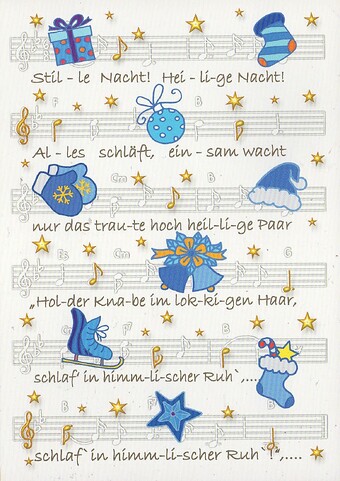 Stil - le Nacht! Hei - li - ge Nacht!
Al - les schläft, ein - sam wacht
nur das trau-te hoch heil-li-ge Paar
„Hol-der Kna-be im lok-ki-gen Haar,
schlaf' in himm-li-scher Ruh`,....
schlaf` in himm-li-scher Ruh`!",....